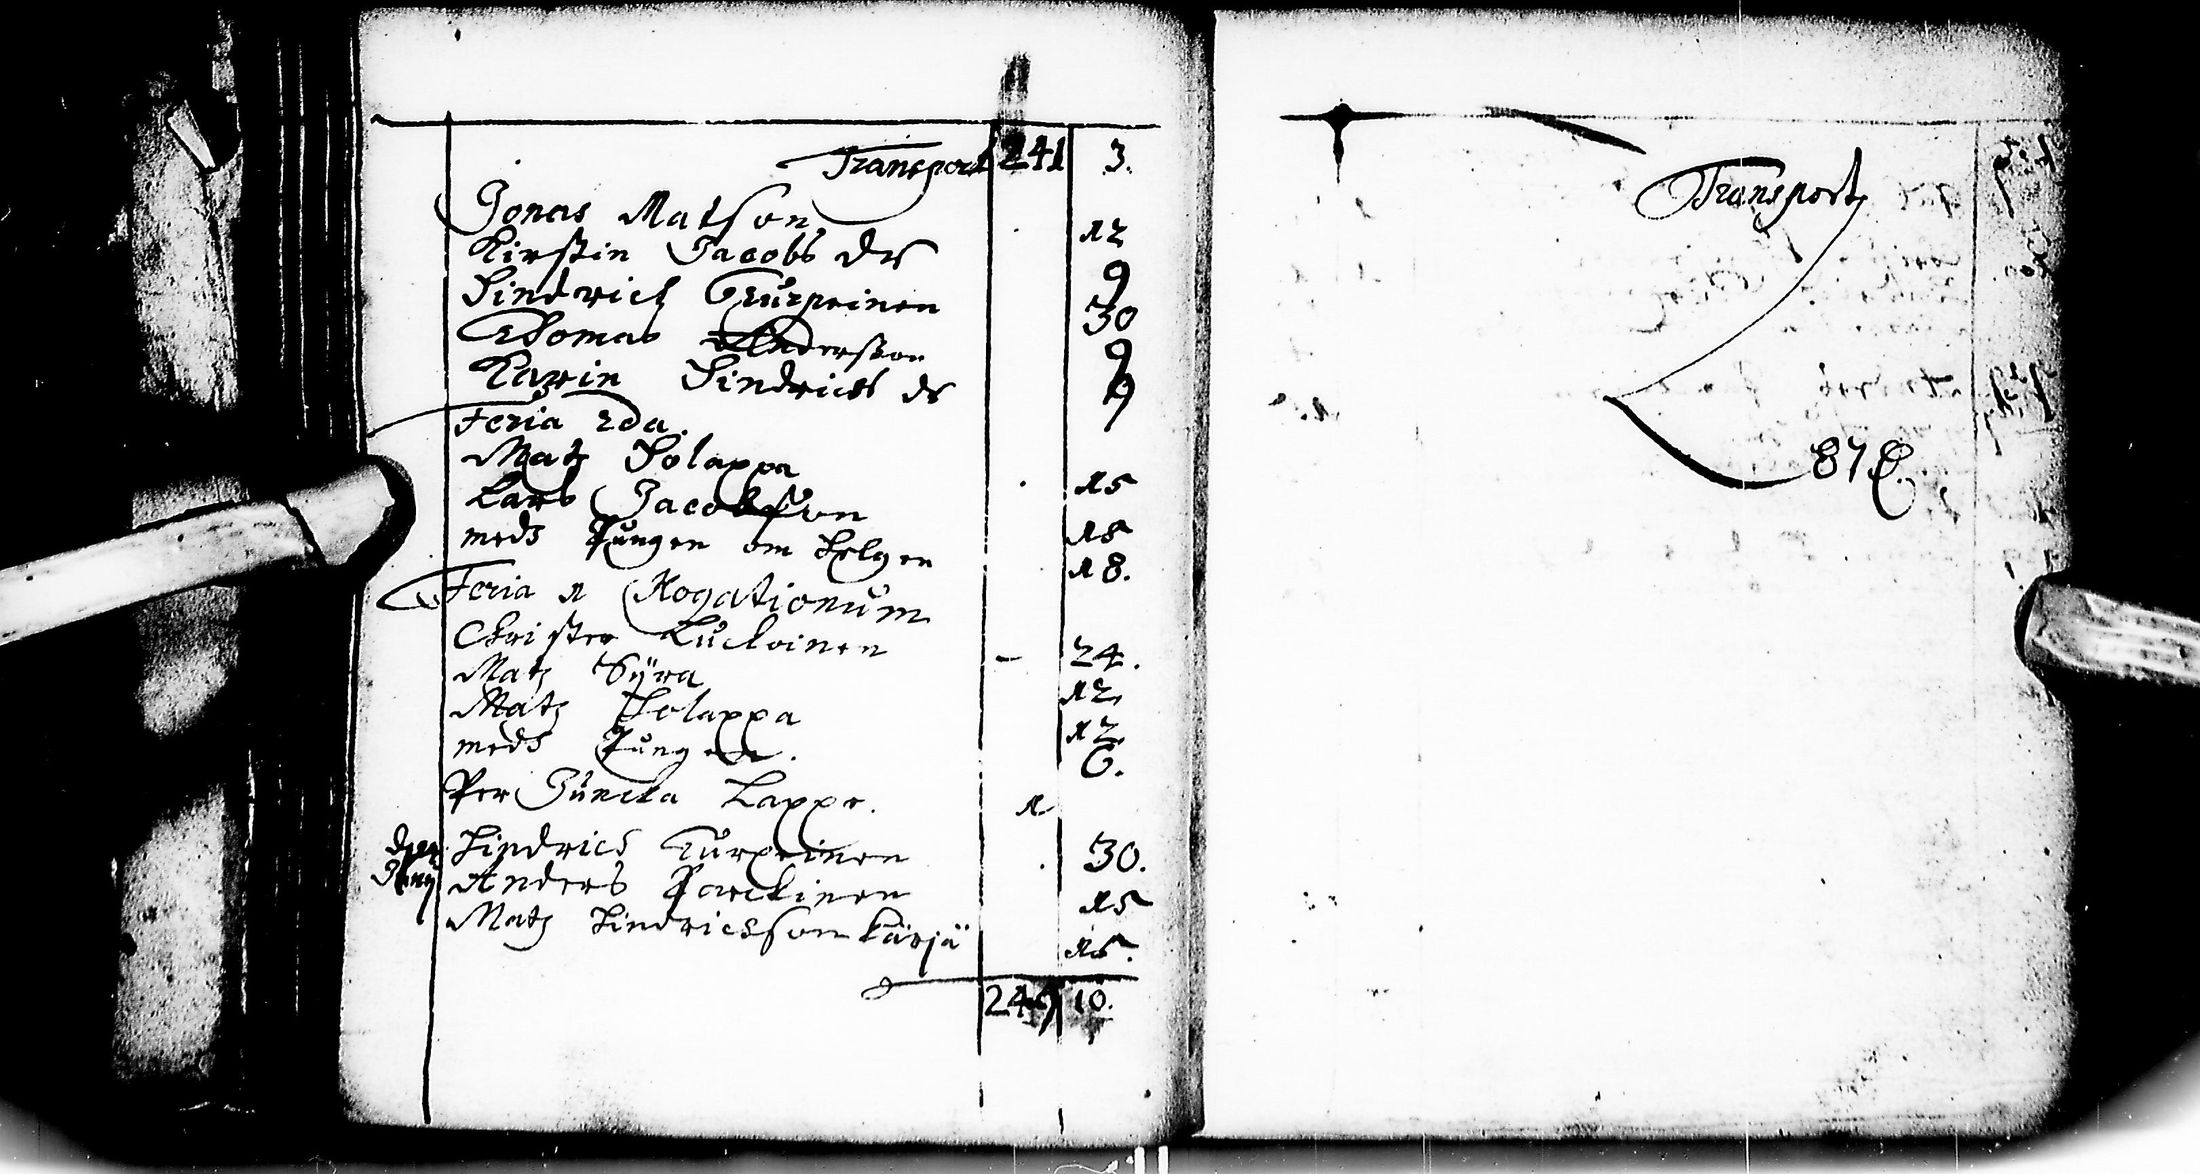 Transport 241 3.
Jonas Matsson 12
Kirstin Jacobs dr 9
Hindrich Turpeinen 30
Thomas Andersson 9
Karin Hindrichs dr 9
Feria 2da.
Matz Solappa 15
Lars Jacobsson 18
medh Pungen om Helgen 18.
Feria 1 Rogationum
Christer Luckoinen 24.
Matz Syra 12.
Matz Solappa 12.
medh Pungen. 6.
Per Juncka Lappe. 1
Hindrich Turpeinen 30.
Anders Parckinen 15
Matz Hindricsson Kärjä 15.
249 10.
Transport
87